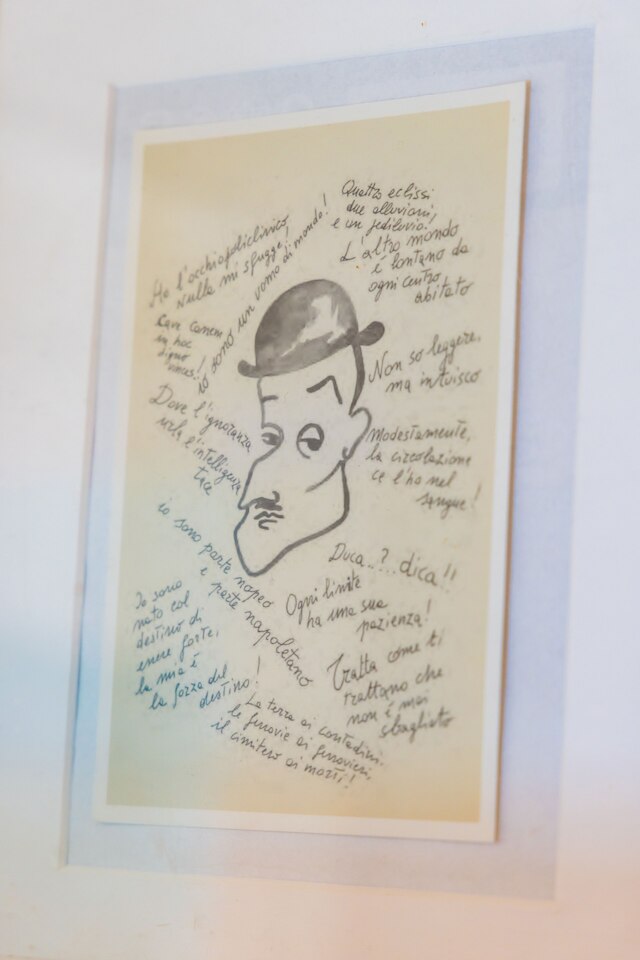 Quattro eclissi
due alluvioni,
e un pediluvio!
L'altro mondo
è lontano da
ogni centro
abitato
Ho l'occhiopoliclinico,
nulla mi sfugge,
io sono un uomo di mondo!
Cave canem
in hoc
signo
vinces!
Non so leggere,
ma intuisco
Dove l'ignoranza
urla l'intelligenza
tace
Modestamente,
la circolazione
ce l'ho nel
sangue!
io sono parte nopeo
e parte napoletano
Duca..? dica!!
Ogni limite
ha una sua
pazienza!
Io sono
nato col
destino di
essere forte,
la mia è
la forza del
destino!
Tratta come ti
trattano che
non è mai
sbagliato
La terra ai contadini.
le ferrovie ai ferrovieri,
il cimitero ai morti!